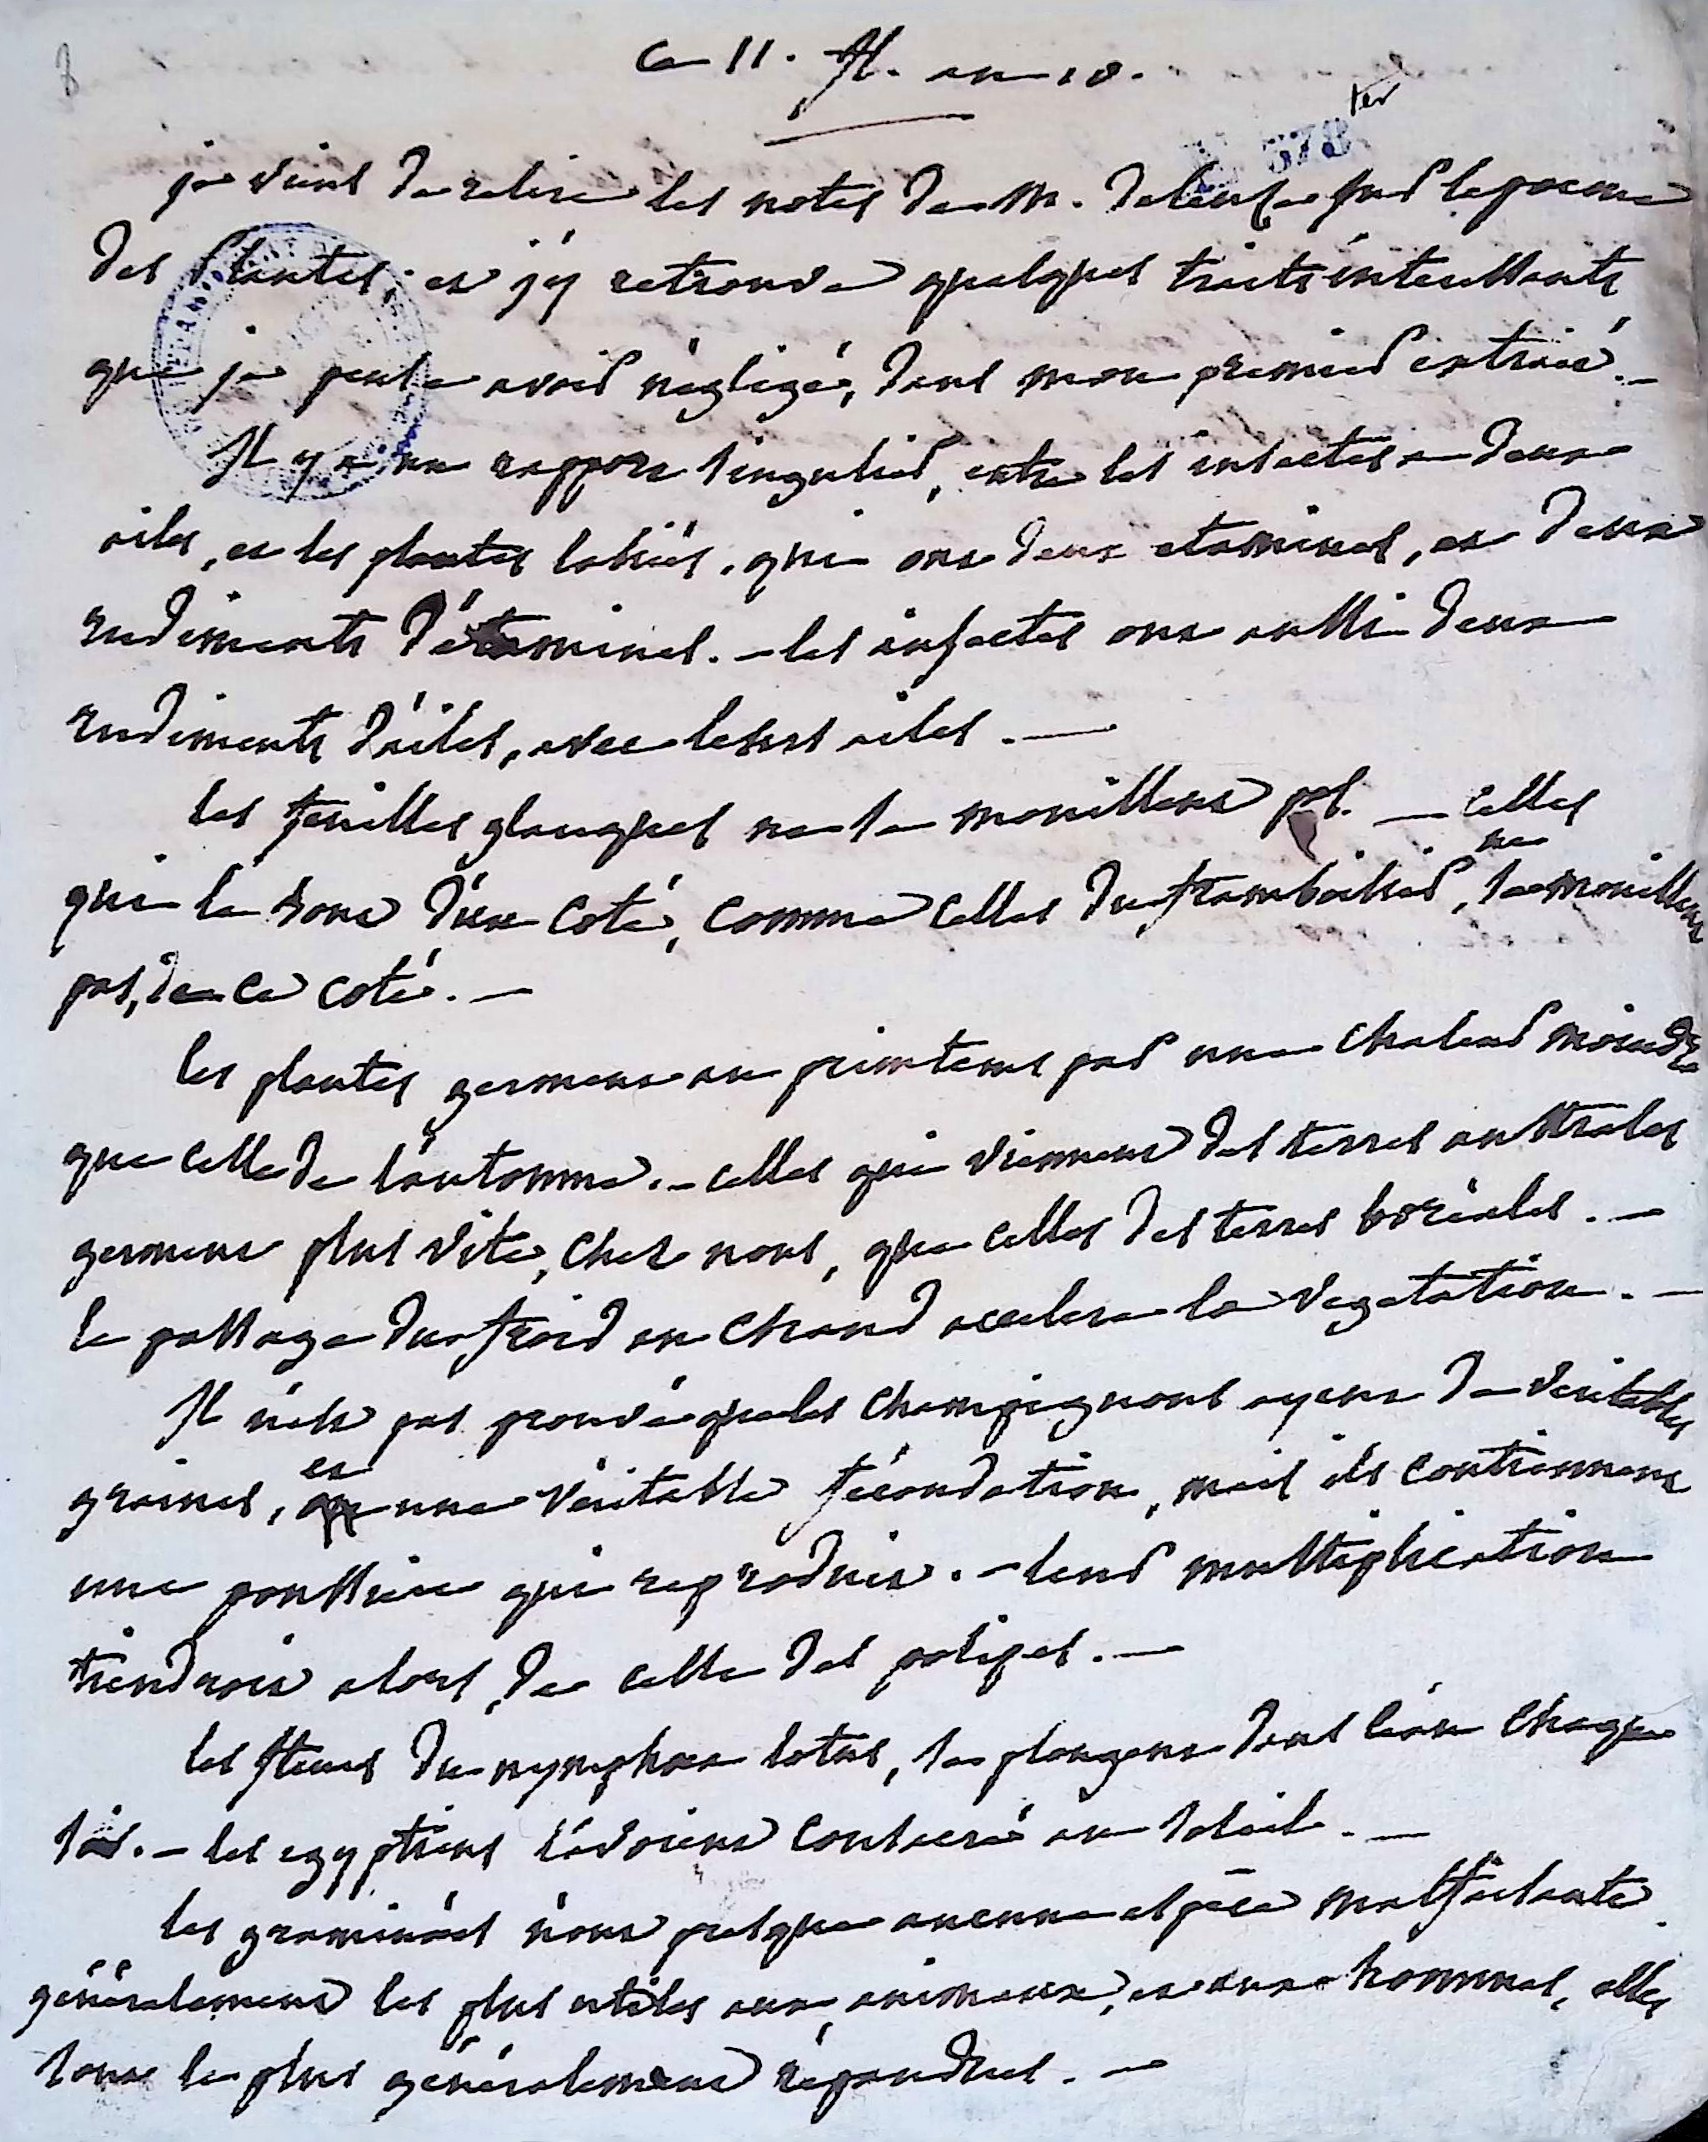 8
Ce 11. fl. an 10.
ter
578
je viens de relire les notes de M. Deleuze sur le poeme
des Plantes, et j'y retrouve quelques traits interessants
que je pense avoir négligé, dans mon premier extrait. —
Il y a un rapport singulier, entre les insectes a deux
ailes, et les plantes labiées, qui ont deux etamines, et deux
rudiments d'étamines. — les insectes ont aussi deux
rudiments d'ailes, avec leurs ailes. —
les feuilles glauques ne se mouillent pas. — celles
qui le sont d'un coté, comme celles du framboisier, ne se mouillent
pas, de ce coté. —
les plantes germent au printems par une chaleur moindre
que celle de l'automne. — celles qui viennent des terres australes
germent plus vite, chez nous, que celles des terres boréales. —
le passage du froid au chaud accelere la vegetation. —
Il n'est pas prouvé que les champignons ayent de veritables
graines, et une véritable fécondation, mais ils contiennent
une poussiere qui reproduit. — leur multiplication
tiendroit alors, de celle des polipes. —
les fleurs du nymphaea lotus, se plongent dans l'eau chaque
soir. — les egyptiens l'avoient consacré au soleil. —
les graminées n'ont presque aucune espèce malfaisante.
généralement les plus utiles aux animaux, et aux hommes, elles
sont le plus généralement répandues. —